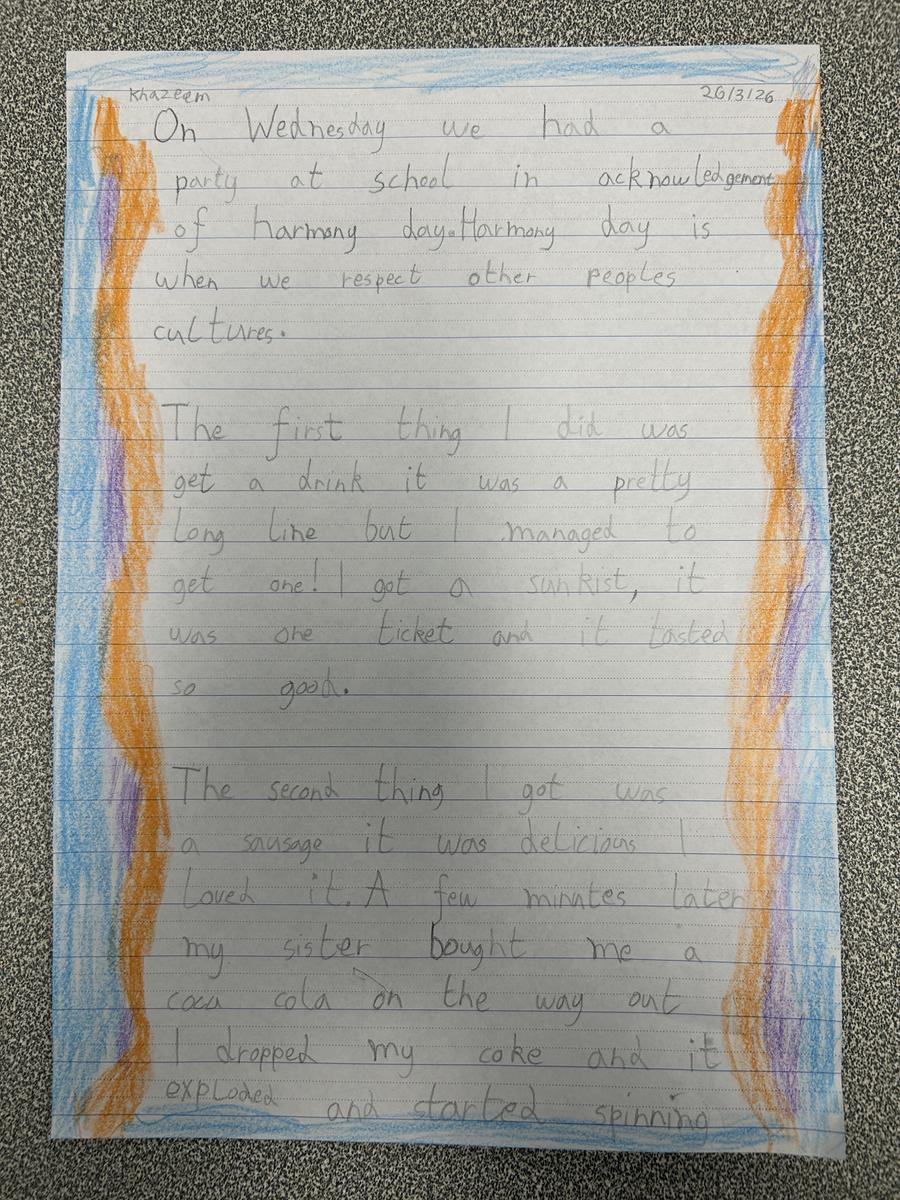 Khazeem 26/3/26
On Wednesday we had a
party at school in acknowledgement
of harmony day.Harmony day is
when we respect other peoples
cultures.
The first thing I did was
get a drink it was a pretty
long line but I managed to
get one! I got a sunkist, it
was one ticket and it tasted
so good.
The second thing I got was
a sausage it was delicious I
loved it. A few minutes later
my sister bought me a
coca cola on the way out
I dropped my coke and it
exploded and started spinning